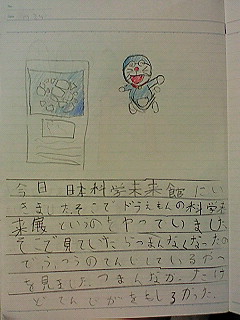 今日、日本科学未来館にい
きました。そこでドラえもんの科学未
来展というのをやっていました
そこで見ていたらつまんなくなったの
で、ふつうのてんじしているやつ
を見ました。つまんなか たけ
どてんじがおもしろかった。